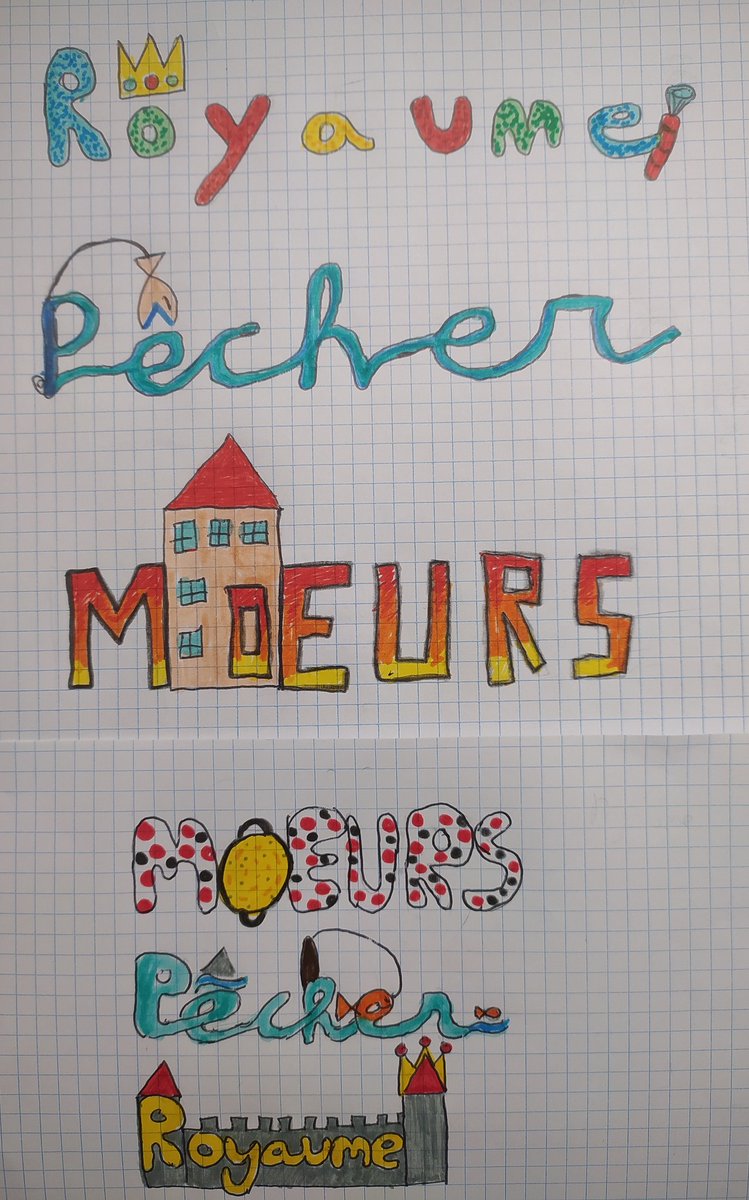 Royaume
Pêcher
MOEURS
MOEURS
Pêcher
Royaume